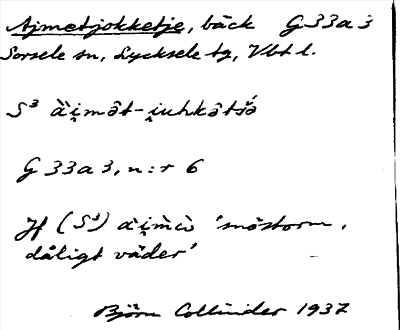 Ajmetjokketje, bäck G 33 a 3
Sorsele sn, Lycksele tg, Vbt l.
S³ ὰi̯mōt-i̯uhkətšə́
G 33 a 3, n:r 6
Jf (S³) ὰi̯mὼ 'snöstorm,
dåligt väder'
Björn Collinder 1937